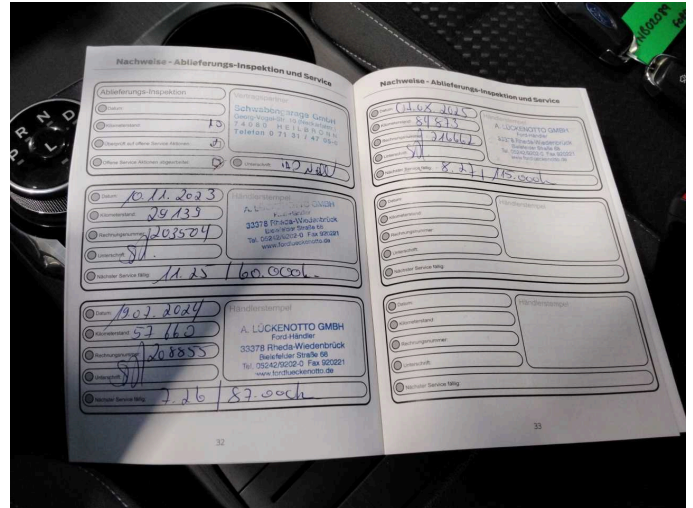 Nachweise - Ablieferungs-Inspektion und Service
Ablieferungs-Inspektion
Datum:
Kilometerstand: 10
Überprüft auf offene Service Aktionen:
Offene Service Aktionen abgearbeitet:
Vertragspartner
Schwabengarage GmbH
74080 HEILBRONN
Telefon 0 71 31 / 47
Unterschrift:
Datum: 10.11.2023
Kilometerstand: 29139
Rechnungsnummer: 203504
Unterschrift:
Nächster Service fällig: 11.25 / 60.000k
Händlerstempel
A. LÜCKENOTTO GMBH
33378 Rheda-Wiedenbrück
Bielefelder Straße 68
Tel. 05242/9202-0 Fax 920221
www.fordlueckenotto.de
Datum: 19.07.2024
Kilometerstand: 57660
Rechnungsnummer: 208855
Unterschrift:
Nächster Service fällig: 7.26 / 87.000k
Händlerstempel
A. LÜCKENOTTO GMBH
Ford-Händler
33378 Rheda-Wiedenbrück
Bielefelder Straße 68
Tel. 05242/9202-0 Fax 920221
www.fordlueckenotto.de
32
Nachweise - Ablieferungs-Inspektion und Service
Datum: 01.08.2025
Kilometerstand:
Rechnungsnummer: 216662
Unterschrift:
Nächster Service fällig: 8.27 / 115.000k
A. LÜCKENOTTO GMBH
33378 Rheda-Wiedenbrück
Bielefelder Straße 68
Tel. 05242/9202-0 Fax 920221
www.fordlueckenotto.de
Datum:
Kilometerstand:
Rechnungsnummer:
Unterschrift:
Nächster Service fällig:
Händlerstempel
Datum:
Kilometerstand:
Rechnungsnummer:
Unterschrift:
Nächster Service fällig:
Händlerstempel
33
P R N D
L
Ford